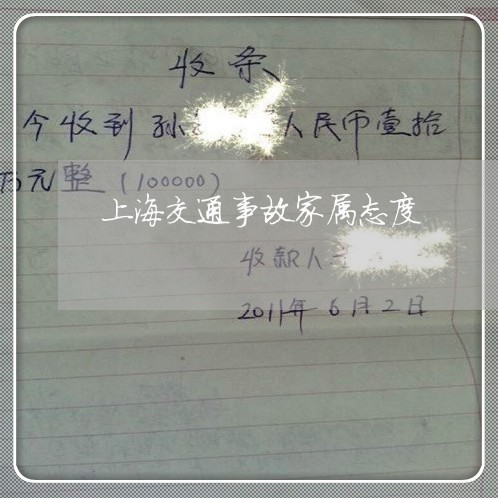 收条
今收到孙 人民币壹拾
万元整（100000）
上海交通事故家属态度
收款人
2011年6月2日